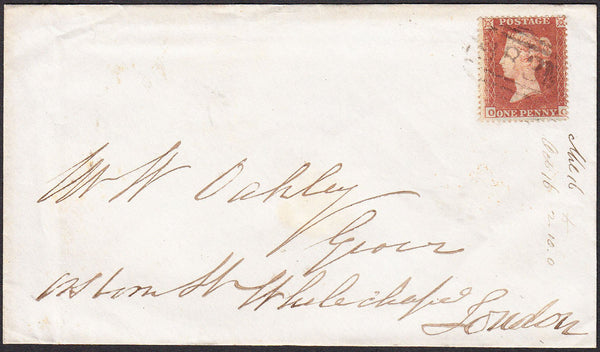 POSTAGE
O ONE PENNY G
Mr W Oakley
Grocer
Osborn St Whitechapel
London
16
16 2.10.0